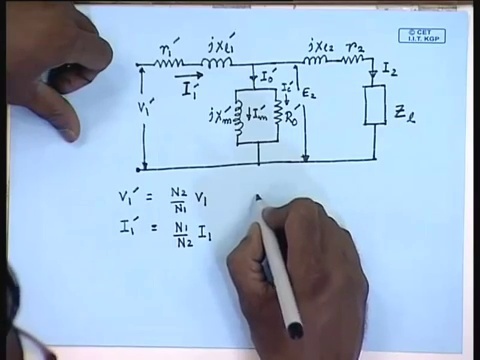 © CET
I.I.T. KGP
r₁′ jxl₁′ jxl₂ r₂
I₁′ I₀′ I₂
V₁′ jXm′ Im′ Ii′ R₀′ E₂ Zl
V₁′ = N₂/N₁ V₁
I₁′ = N₁/N₂ I₁